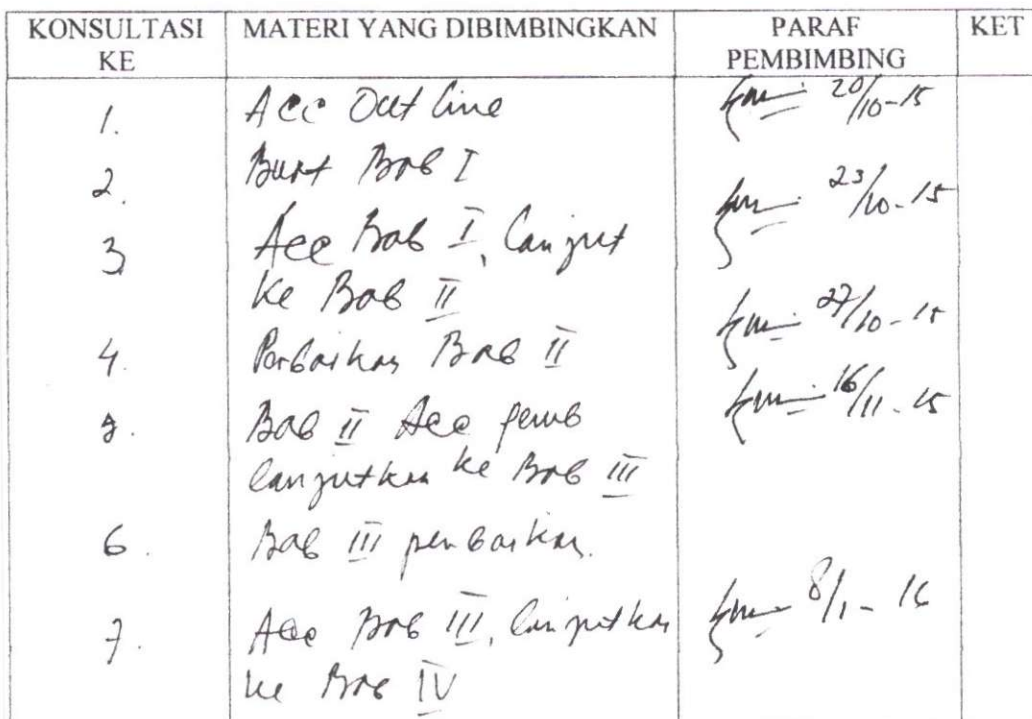 KONSULTASI KE MATERI YANG DIBIMBINGKAN PARAF PEMBIMBING KET
1. Acc Out line 20/10-15
2. Buat Bab I
23/10-15
3 Acc Bab I, lanjut
ke Bab II
27/10-15
4. Perbaikan Bab II
16/11-15
5. Bab II Acc pemb
lanjutkan ke Bab III
6. Bab III perbaikan.
7. Acc Bab III, lanjutkan 8/1-16
ke Bab IV